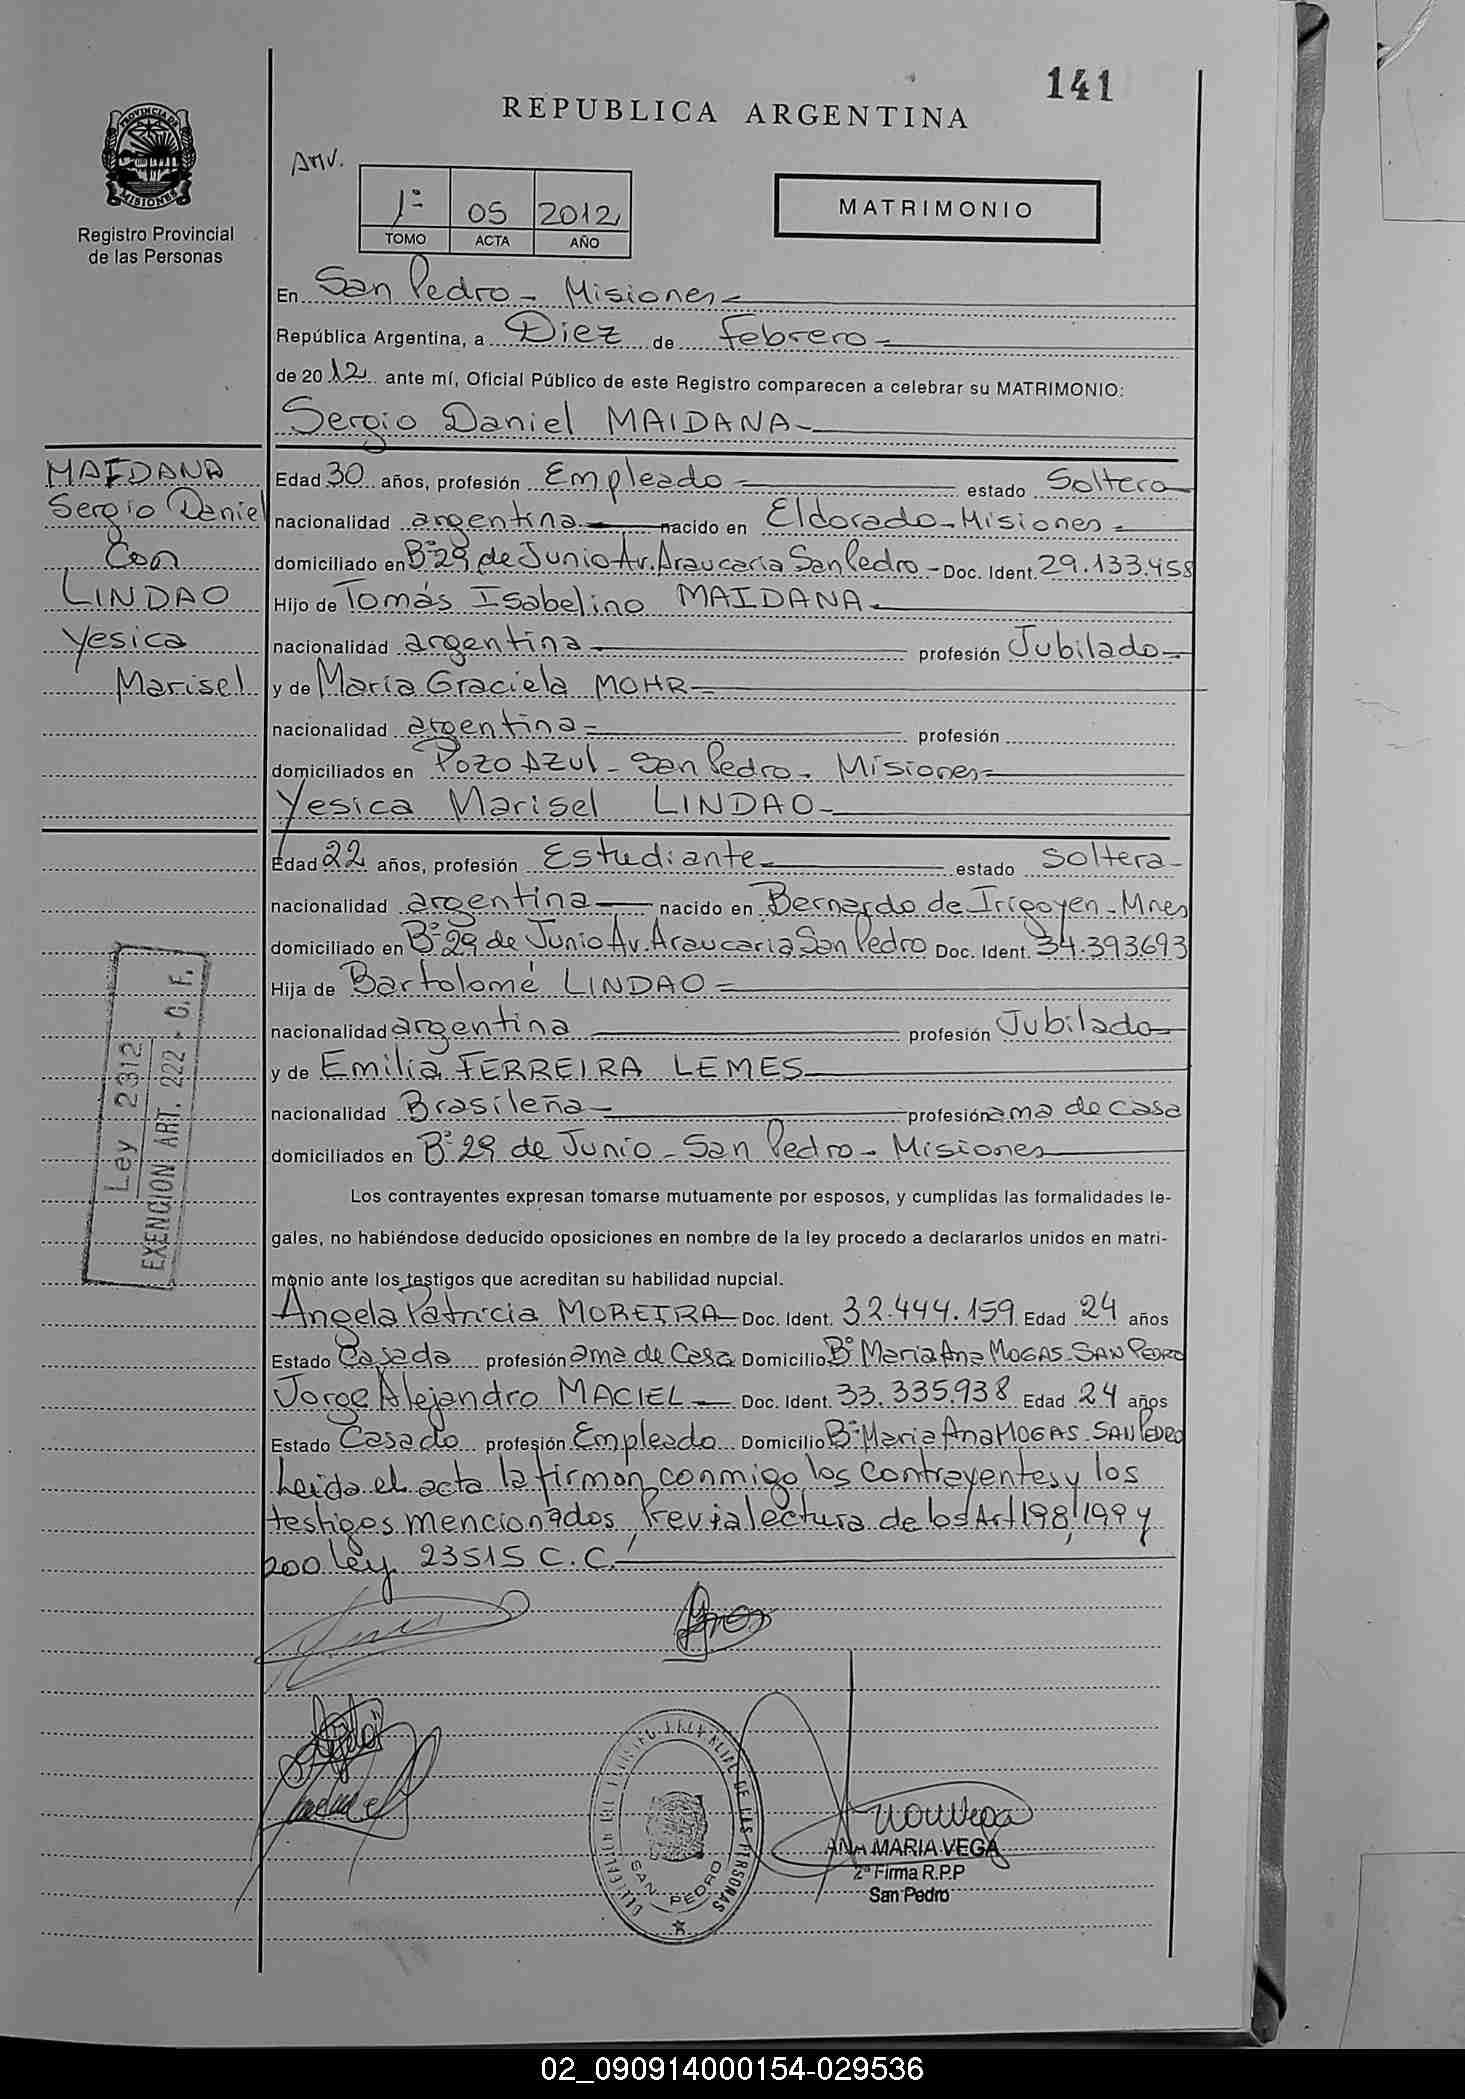 141
REPUBLICA ARGENTINA
PROVINCIA DE
MISIONES
Registro Provincial
de las Personas
Anv.
1º 05 2012
TOMO ACTA AÑO
MATRIMONIO
En San Pedro - Misiones
República Argentina, a Diez de Febrero
de 2012 ante mí, Oficial Público de este Registro comparecen a celebrar su MATRIMONIO:
Sergio Daniel MAIDANA
MAIDANA
Sergio Daniel
Con
LINDAO
Yesica
Marisel
Edad 30 años, profesión Empleado estado Soltero
nacionalidad argentina nacido en Eldorado - Misiones
domiciliado en Bº 29 de Junio Av. Araucaria San Pedro - Doc. Ident. 29.133.458
Hijo de Tomás Isabelino MAIDANA
nacionalidad argentina profesión Jubilado
y de María Graciela MOHR
nacionalidad argentina profesión
domiciliados en Pozo Azul - San Pedro - Misiones
Yesica Marisel LINDAO
Edad 22 años, profesión Estudiante estado Soltera
nacionalidad argentina nacido en Bernardo de Irigoyen - Mnes
domiciliado en Bº 29 de Junio Av. Araucaria San Pedro Doc. Ident. 34.393693
Hija de Bartolomé LINDAO
nacionalidad argentina profesión Jubilado
y de Emilia FERREIRA LEMES
nacionalidad Brasileña profesión ama de casa
domiciliados en Bº 29 de Junio - San Pedro - Misiones
Ley 2312
EXENCION ART. 222 - C. F.
Los contrayentes expresan tomarse mutuamente por esposos, y cumplidas las formalidades le-
gales, no habiéndose deducido oposiciones en nombre de la ley procedo a declararlos unidos en matri-
monio ante los testigos que acreditan su habilidad nupcial.
Angela Patricia MOREIRA Doc. Ident. 32.444.159 Edad 24 años
Estado Casada profesión ama de Casa Domicilio Bº Maria Ana MOGAS - SAN PEDRO
Jorge Alejandro MACIEL Doc. Ident. 33.335.938 Edad 24 años
Estado Casado profesión Empleado Domicilio Bº Maria Ana MOGAS - SAN PEDRO
Leida el acta la firman conmigo los contrayentes y los
testigos mencionados, Previa lectura de los Art 198, 199 y
200 ley 23515 C.C.
REGISTRO PROVINCIAL DE LAS PERSONAS
SAN PEDRO
ANA MARIA VEGA
2ª Firma R.P.P
San Pedro
02_090914000154-029536